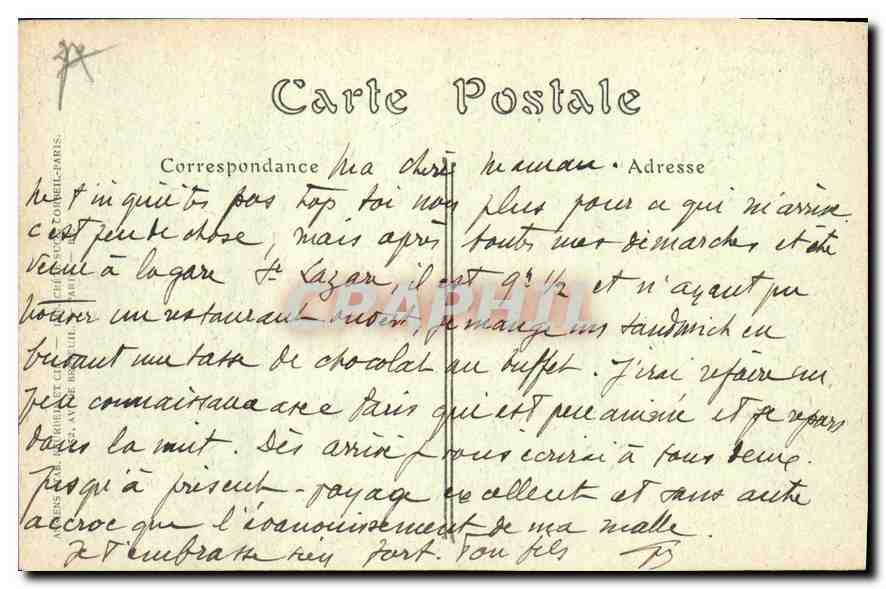 Carte Postale
Correspondance Ma chère maman. Adresse
ne t'inquiète pas trop toi non plus pour ce qui m'arrive
c'est peu de chose, mais après toutes mes démarches et été
venu à la gare St Lazare, il est 9h 1/2 et n'ayant pu
trouver un restaurant ouvert, je mange un sandwich en
buvant une tasse de chocolat au buffet. J'irai refaire un
peu connaissance avec Paris qui est peu animé et je repars
dans la nuit. Dès arrivé je vous écrirai à tous deux.
Jusqu'à présent voyage excellent et sans autre
accroc que l'évanouissement de ma malle
Je t'embrasse bien fort. Ton fils
CPAPHIL